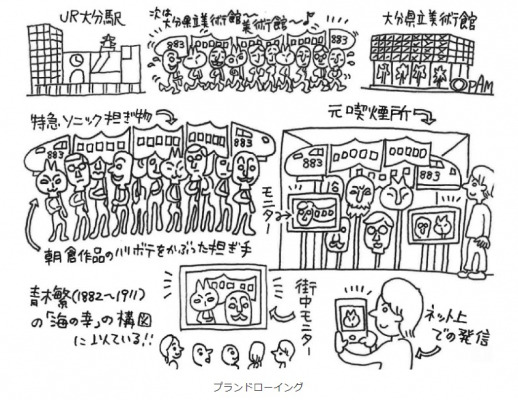 JR大分駅
次は
大分県立美術館〜
美術館〜♪
883
883
大分県立美術館
OPAM
特急ソニック担ぎ物
883
883
元喫煙所
883
883
モニター
朝倉作品のハリボテをかぶった担ぎ手
青木繁(1882〜1911)
の「海の幸」の構図
に似ている!!
街中モニター
ネット上
での発信
プランドローイング